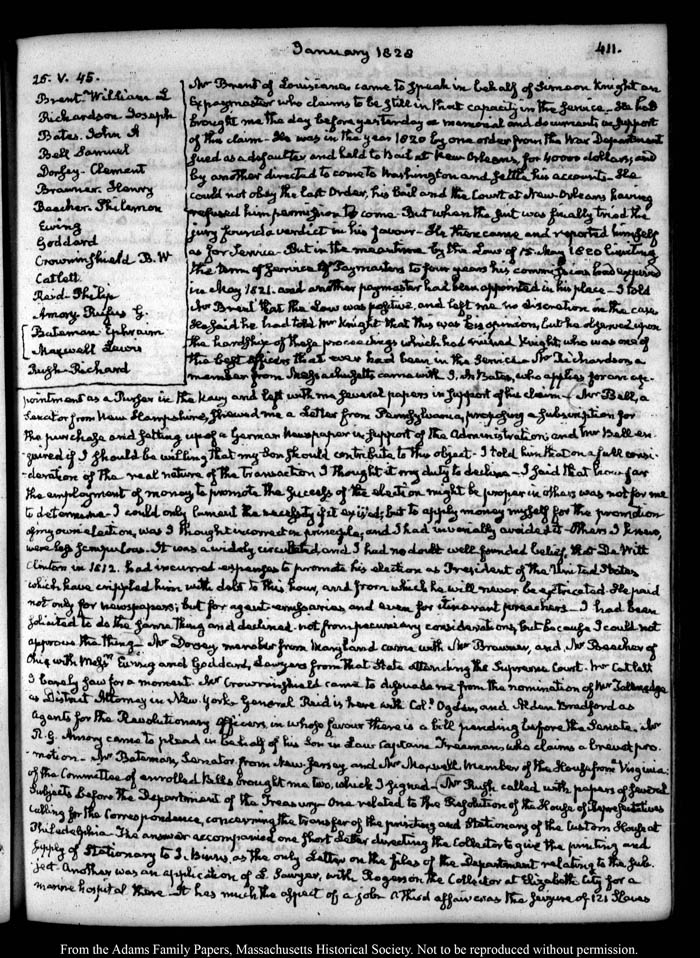 January 1828
411.
25. V. 45.
Brent. William L
Richardson Joseph
Bates. John A
Bell Samuel
Dorsey. Clement
Brawner. Henry
Beecher. Philemon
Ewing
Goddard
Crowninshield B. W
Catlett
Reid Philip
Amory Rufus G.
Bateman Ephraim
Maxwell Lewis
Rush. Richard
Mr Brent of Louisiana came to speak in behalf of Simeon Knight an
Expaymaster who claims to be still in that capacity in the service_ He had
brought me the day before yesterday a memorial and documents in support
of this claim_ He was in the year 1820 by one order from the War Department
sued as a defaulter and held to Bail at New Orleans, for 40000 dollars; and
by another directed to come to Washington and settle his accounts_ He
could not obey the last Order, his bail and the Court at New-Orleans having
refused him permission to come. But when the suit was finally tried the
jury found a verdict in his favour_ He then came and reported himself
as for service_ But in the meantime by the Law of 15. May 1820 limiting
the term of service of Paymasters to four years his commission had expired
in May 1821. and another paymaster had been appointed in his place_ I told
Mr Brent that the Law was positive, and left me no discretion in the case
He said he had told Mr Knight that this was his opinion, but he observed upon
the hardship of these proceedings which had ruined Knight, who was one of
the best officers that ever had been in the service_ Mr Richardson a
member from Massachusetts came with J. A Bates, who applies for an ap-
pointment as a Purser in the Navy and left with me several papers in support of his claim_ Mr Bell, a
Senator from New Hampshire, shewed me a Letter from Pennsylvania, proposing a subscription for
the purchase and setting up of a German Newspaper in support of the Administration; and Mr Bell en-
quired if I should be willing that my Son should contribute to this object_ I told him that on a full consi-
deration of the real nature of the transaction I thought it my duty to decline_ I said that how far
the employment of money to promote the success of the election might be proper in others was not for me
to determine_ I could only lament the necessity if it existed; but to apply money myself for the promotion
of my own election, was I thought incorrect in principle, and I had invariably avoided it_ Others I knew,
were less scrupulous_ It was a widely circulated, and I had no doubt well founded belief, that De Witt
Clinton in 1812. had incurred expenses to promote his election as President of the United States
which have crippled him with debt to this hour, and from which he will never be extricated. He paid
not only for newspapers; but for agent emissaries and even for itinerant preachers_ I had been
solicited to do the same thing and declined. not from pecuniary considerations, but because I could not
approve the thing_ Mr Dorsey member from Maryland came with Mr Brawner, and Mr Beecher of
Ohio with Messrs Ewing and Goddard, Lawyers from that State attending the Supreme Court. Mr Catlett
I barely saw for a moment. Mr Crowninshield came to dissuade me from the nomination of Mr Tallmadge
as District Attorney in New York. General Reid is here with Coll. Ogden, and Alden Bradford as
Agents for the Revolutionary Officers in whose favour there is a bill pending before the Senate. Mr
R. G. Amory came to plead in behalf of his Son in Law Captain Freeman, who claims a brevet pro-
motion_ Mr Bateman, Senator from New Jersey and Mr Maxwell Member of the House from Virginia:
of the Committee of enrolled Bills brought me two, which I signed_ Mr Rush called with papers of several
subjects before the Department of the Treasury_ One related to the Resolution of the House of Representatives
calling for the Correspondence, concerning the transfer of the printing and Stationary of the Custom House at
Philadelphia_ The answer accompanied one short Letter directing the Collector to give the printing and
supply of Stationary to J. Binns, as the only Letter on the files of the Department relating to the sub-
ject. Another was an application of L. Sawyer, with Rogerson the Collector at Elizabeth City for a
marine hospital there_ It has much the aspect of a job_ A third affair was the seizure of 121 Slaves
From the Adams Family Papers, Massachusetts Historical Society. Not to be reproduced without permission.